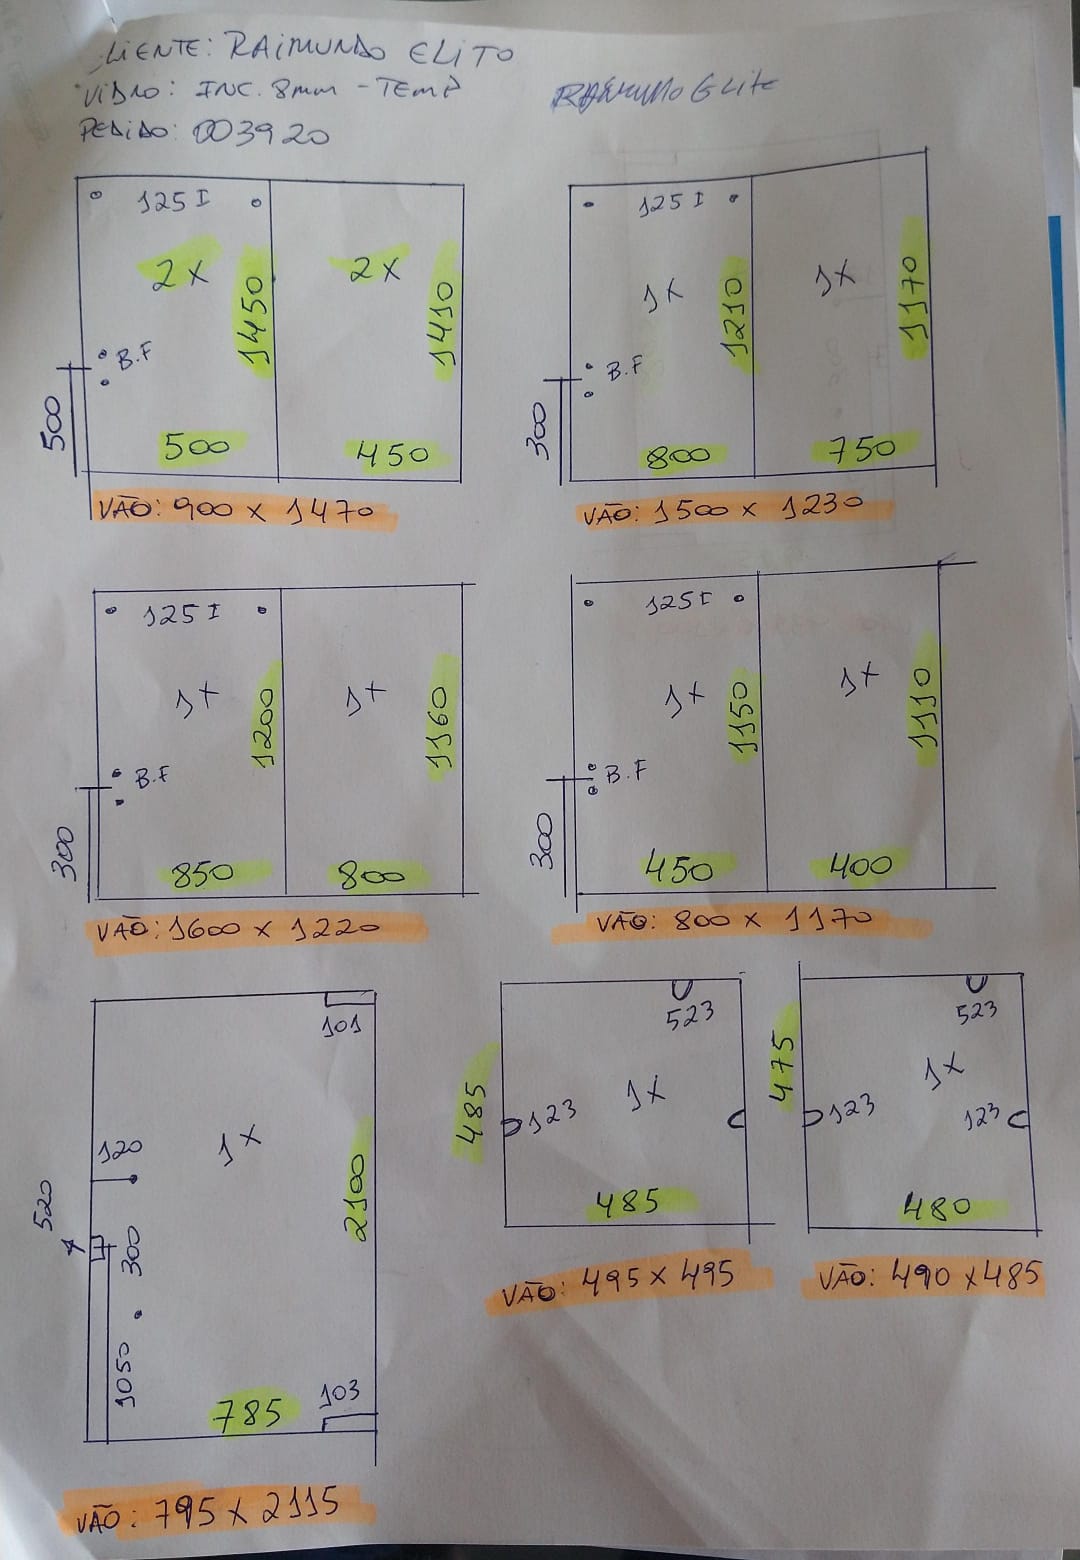 CLIENTE: RAIMUNDO ELITO
VIDRO: INC. 8mm - TEMP
PEDIDO: 003920
125 I
2x
2x
1450
1410
B.F
500
500
450
VÃO: 900 x 1470
125 I
1x
1x
1210
1170
B.F
300
800
750
VÃO: 1500 x 1230
125 I
1x
1x
1200
1160
B.F
300
850
800
VÃO: 1600 x 1220
125 I
1x
1x
1150
1110
B.F
300
450
400
VÃO: 800 x 1170
101
120
1x
2100
520
300
1050
785
103
VÃO: 795 x 2115
523
485
123
1x
485
VÃO: 495 x 495
523
475
1x
123
123
480
VÃO: 490 x 485